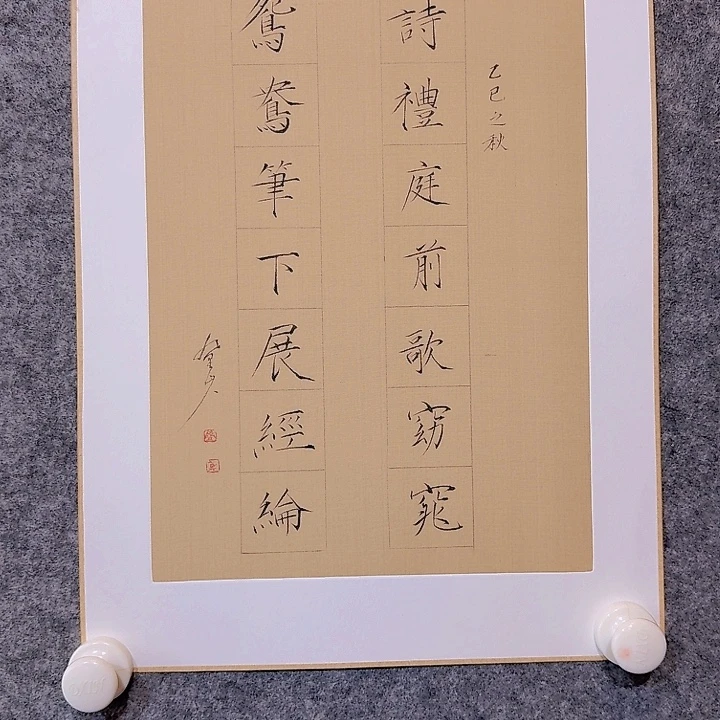 乙巳之秋
詩禮庭前歌窈窕
鴛鴦筆下展經綸